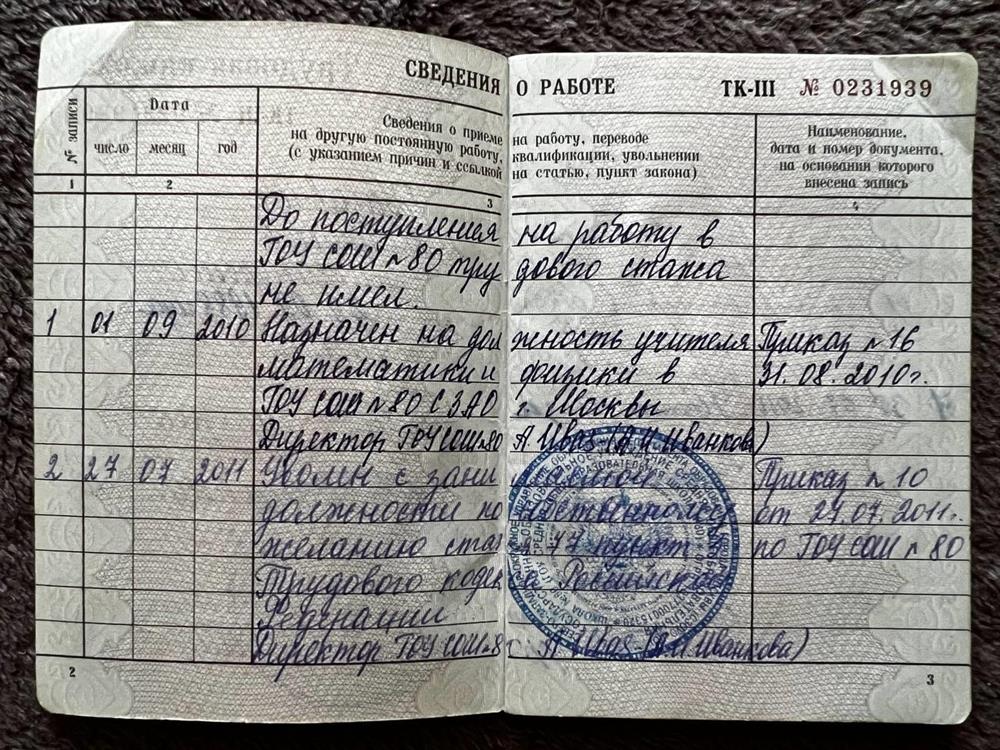 СВЕДЕНИЯ О РАБОТЕ
ТК-III № 0231939
№ записи
Дата
число месяц год
Сведения о приеме на работу, переводе
на другую постоянную работу, квалификации, увольнении
(с указанием причин и ссылкой на статью, пункт закона)
Наименование,
дата и номер документа,
на основании которого
внесена запись
1 2 3 4
До поступления на работу в
ГОУ СОШ №80 трудового стажа
не имел.
1 01 09 2010 Назначен на должность учителя Приказ №16
математики и физики в 31.08.2010г.
ГОУ СОШ №80 СЗАО г. Москвы
Директор ГОУ СОШ №80 (А.И. Иванкова)
2 27 07 2011 Уволен с занимаемой Приказ №10
должности по собственному от 27.07.2011г.
желанию 77 пункт по ГОУ СОШ №80
Трудового кодекса Российской
Федерации
Директор ГОУ СОШ №80 (А.И. Иванкова)
2 3